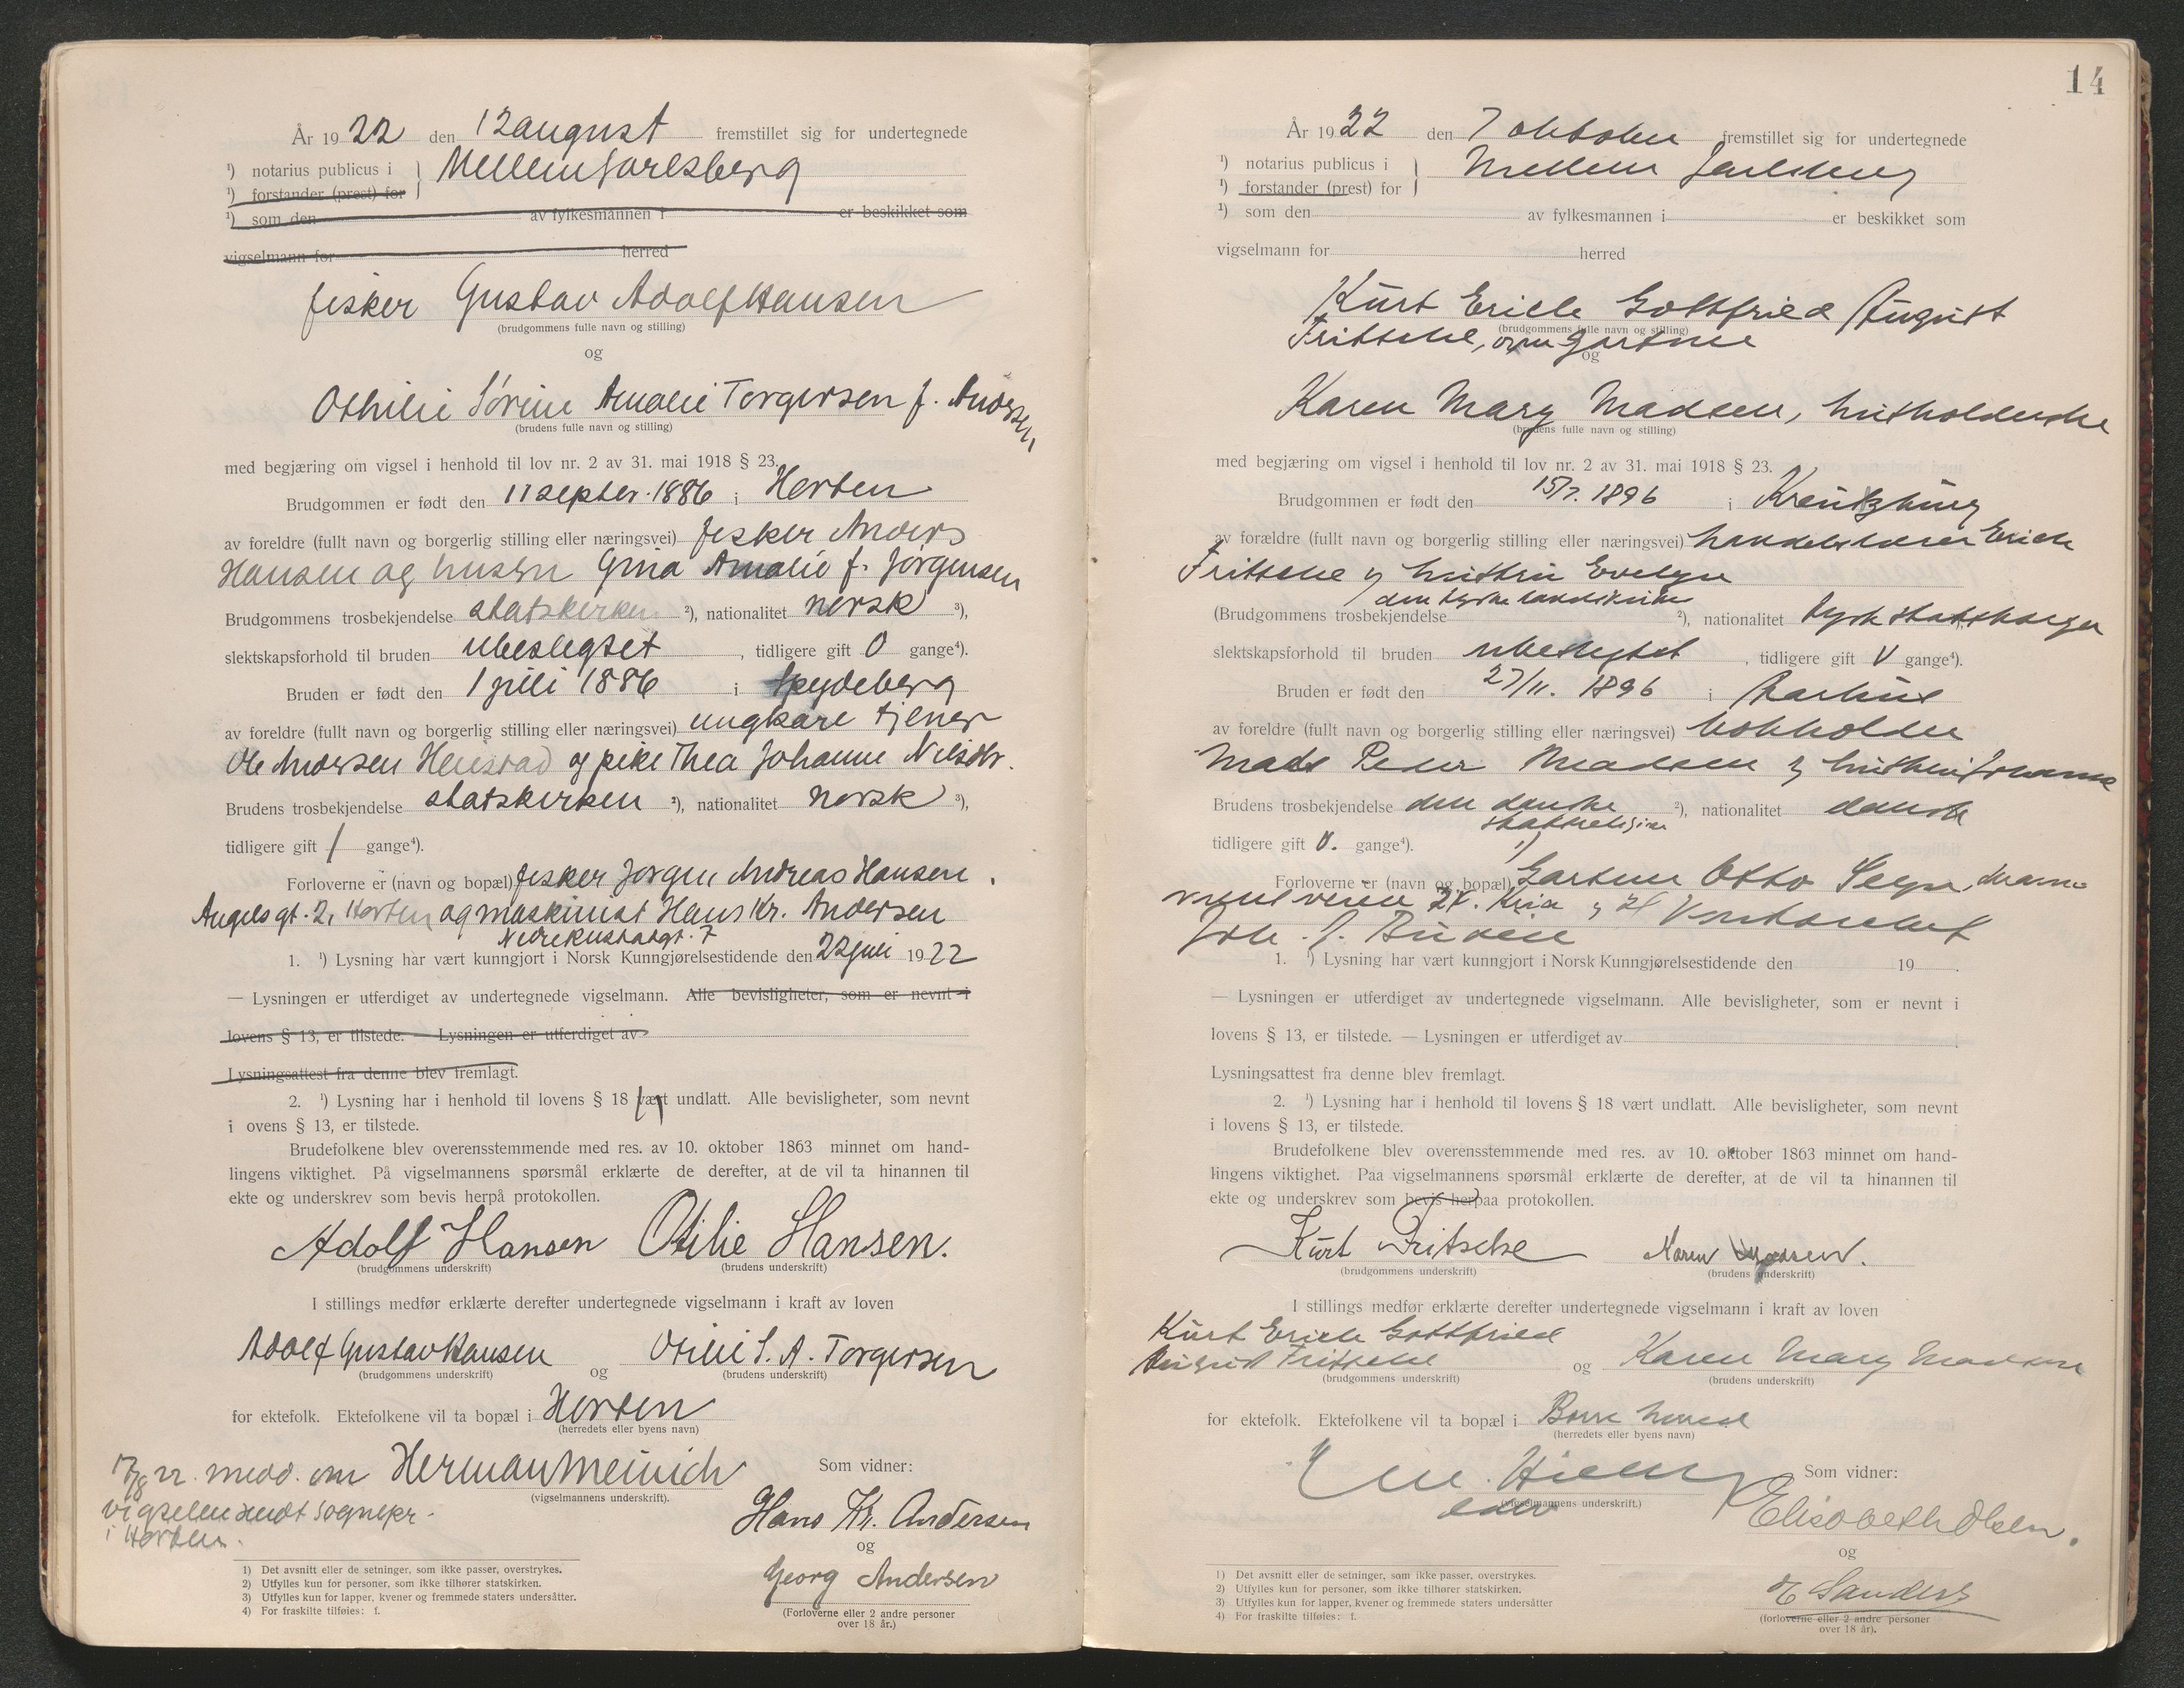 År 1922 den 12 august fremstillet sig for undertegnede
¹) notarius publicus i } Mellem Jarlsberg
¹) forstander (prest) for
¹) som den av fylkesmannen i er beskikket som
vigselmann for herred
fisker Gustav Adolf Hansen
(brudgommens fulle navn og stilling)
og
Othilie Sørine Amalie Torgersen f. Andersen
(brudens fulle navn og stilling)
med begjæring om vigsel i henhold til lov nr. 2 av 31. mai 1918 § 23.
Brudgommen er født den 11 septbr. 1886 i Horten
av foreldre (fullt navn og borgerlig stilling eller næringsvei) fisker Anders
Hansen og hustru Gina Amalie f. Jørgensen
Brudgommens trosbekjendelse statskirken ²), nationalitet norsk ³),
slektskapsforhold til bruden ubeslegtet, tidligere gift 0 gange⁴).
Bruden er født den 1 juli 1886 i Spydeberg
av foreldre (fullt navn og borgerlig stilling eller næringsvei) ungkare tjener
Ole Andersen Heistad og pike Thea Johanne Nilsdtr.
Brudens trosbekjendelse statskirken ²), nationalitet norsk ³),
tidligere gift 1 gange⁴).
Forloverne er (navn og bopæl) fisker Jørgen Andreas Hansen,
Augels gt. 2, Horten og maskinist Hans Kr. Andersen
1. ¹) Lysning har vært kunngjort i Norsk Kunngjørelsestidende den 22 juli 1922
— Lysningen er utferdiget av undertegnede vigselmann. Alle bevisligheter, som er nevnt i
lovens § 13, er tilstede. — Lysningen er utferdiget av
Lysningsattest fra denne blev fremlagt.
2. ¹) Lysning har i henhold til lovens § 18 vært undlatt. Alle bevisligheter, som nevnt
i ovens § 13, er tilstede.
Brudefolkene blev overensstemmende med res. av 10. oktober 1863 minnet om hand-
lingens viktighet. På vigselmannens spørsmål erklærte de derefter, at de vil ta hinannen til
ekte og underskrev som bevis herpå protokollen.
Adolf Hansen Otilie Hansen.
(brudgommens underskrift) (brudens underskrift)
I stillings medfør erklærte derefter undertegnede vigselmann i kraft av loven
Adolf Gustav Hansen Otilie S. A. Torgersen
(brudgommens underskrift) og (brudens underskrift)
for ektefolk. Ektefolkene vil ta bopæl i Horten
(herredets eller byens navn)
17/8 22. medd. om Herman Meinich Som vidner:
vigselen sendt sognepr. (vigselmannens underskrift).
i Horten.
Hans Kr. Andersen
og
Georg Andersen
(Forloverne eller 2 andre personer
over 18 år.)
1) Det avsnitt eller de setninger, som ikke passer, overstrykes.
2) Utfylles kun for personer, som ikke tilhører statskirken.
3) Utfylles kun for lapper, kvener og fremmede staters undersåtter.
4) For fraskilte tilføies: f.
14
År 1922 den 7 oktober fremstillet sig for undertegnede
¹) notarius publicus i } Mellem Jarlsberg
¹) forstander (prest) for
¹) som den av fylkesmannen i er beskikket som
vigselmann for herred
Kurt Erich Gottfried August
(brudgommens fulle navn og stilling)
Fritsche, gartner
og
Karen Mary Madsen, husholderske
(brudens fulle navn og stilling)
med begjæring om vigsel i henhold til lov nr. 2 av 31. mai 1918 § 23.
Brudgommen er født den 15/7. 1896 i Kreutzburg
av forældre (fullt navn og borgerlig stilling eller næringsvei) Erich
Fritsche og hustru Evelyn
den tyske landskirke
(Brudgommens trosbekjendelse ²), nationalitet tysk statsborger
slektskapsforhold til bruden ubeslegtet, tidligere gift 0 gange⁴).
Bruden er født den 27/11. 1896 i Aarhus
av foreldre (fullt navn og borgerlig stilling eller næringsvei) bokholder
Mads Peder Madsen og hustru Johanne
Brudens trosbekjendelse den danske ²), nationalitet dansk
statsreligion
tidligere gift 0. gange⁴).
Forloverne er (navn og bopæl) Gartner Otto
1. ¹) Lysning har vært kunngjort i Norsk Kunngjørelsestidende den 19
— Lysningen er utferdiget av undertegnede vigselmann. Alle bevisligheter, som er nevnt i
lovens § 13, er tilstede. — Lysningen er utferdiget av
Lysningsattest fra denne blev fremlagt.
2. ¹) Lysning har i henhold til lovens § 18 vært undlatt. Alle bevisligheter, som nevnt
i lovens § 13, er tilstede.
Brudefolkene blev overensstemmende med res. av 10. oktober 1863 minnet om hand-
lingens viktighet. Paa vigselmannens spørsmål erklærte de derefter, at de vil ta hinannen til
ekte og underskrev som bevis herpaa protokollen.
Kurt Fritsche Karen Madsen.
(brudgommens underskrift) (brudens underskrift)
I stillings medfør erklærte derefter undertegnede vigselmann i kraft av loven
Kurt Erich Gottfried
August Fritsche og Karen Mary Madsen
(brudgommens underskrift) (brudens underskrift)
for ektefolk. Ektefolkene vil ta bopæl i Borre herred
(herredets eller byens navn)
Som vidner:
(vigselmannens underskrift.)
Elisabeth Olsen.
og
Sanders
(forloverne eller 2 andre personer
over 18 år).
1) Det avsnitt eller de setninger, som ikke passer, overstrykes.
2) Utfylles kun for personer, som ikke tilhører statskirken.
3) Utfylles kun for lapper, kvener og fremmede staters undersåtter
4) For fraskilte tilføies: f.